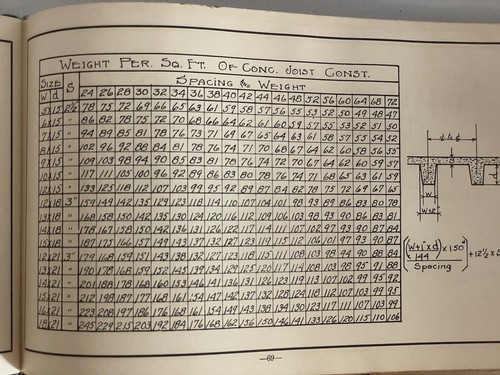 WEIGHT PER. SQ. FT. OF CONC. JOIST CONST.
SIZE S SPACING & WEIGHT
W d 24 26 28 30 32 34 36 38 40 42 44 46 48 52 56 60 64 68 72
5X15 2½ 78 75 72 69 66 65 63 61 59 58 57 56 55 53 52 50 49 48 47
6X15 " 86 82 78 75 72 70 68 66 64 62 61 60 59 57 55 53 52 51 50
7X15 " 94 89 85 81 78 76 73 71 69 67 65 64 63 61 58 57 55 54 52
8X15 " 102 96 92 88 84 81 78 76 74 71 70 68 67 64 62 60 58 56 55
9X15 " 109 103 98 94 90 85 83 81 78 76 74 72 70 67 64 62 60 59 57
10X15 " 117 111 105 100 96 92 89 86 83 80 78 76 74 71 68 65 63 61 59
12X15 " 133 125 118 112 107 103 99 95 92 89 87 84 82 78 75 72 69 67 65
12X18 3" 159 149 142 135 129 123 118 114 110 107 104 101 98 93 89 86 83 80 78
13X18 " 168 158 150 142 135 130 124 120 116 112 109 106 103 98 93 90 86 83 81
14X18 " 178 167 158 150 142 136 131 126 122 117 114 111 107 102 97 93 90 87 84
15X18 " 187 175 166 157 149 143 137 132 127 123 119 115 112 106 101 97 93 90 87
12X21 3" 179 168 159 151 143 138 132 127 123 118 115 111 108 103 98 94 90 88 84
13X21 " 190 178 168 159 152 145 139 134 129 125 120 117 114 108 103 98 95 91 88
14X21 " 201 188 178 168 160 153 146 141 136 131 126 123 119 113 107 102 99 95 92
15X21 " 212 198 187 177 168 161 154 147 142 137 132 128 124 118 112 107 103 99 95
16X21 " 223 208 197 186 176 168 161 154 149 143 138 134 130 123 117 111 107 103 99
18X21 " 245 229 215 203 192 184 176 168 162 156 150 146 141 133 126 120 115 110 106
S
d
W
W+2
(W+1" x d / 144) x 150# + 12½ x S
Spacing
—69—